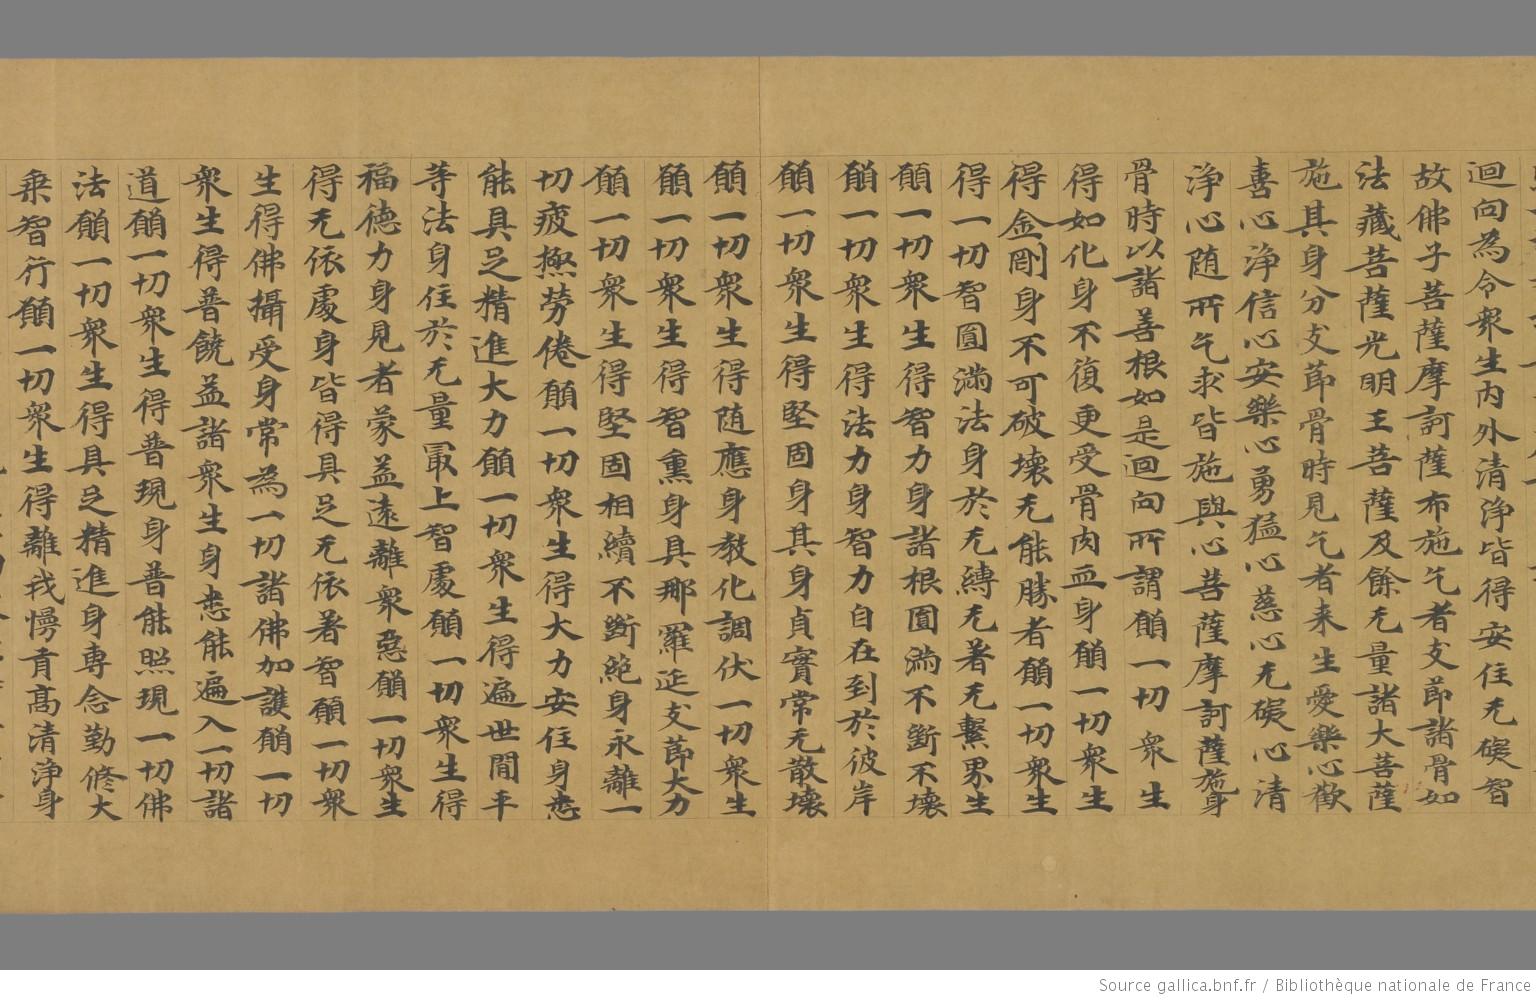 迴向為令衆生内外清淨皆得安住无礙智
故佛子菩薩摩訶薩布施乞者支節諸骨如
法藏菩薩光明王菩薩及餘无量諸大菩薩
施其身分支節骨時見乞者来生愛樂心歡
喜心淨信心安樂心勇猛心慈心无礙心清
淨心随所乞求皆施與心菩薩摩訶薩施身
骨時以諸善根如是迴向所謂願一切衆生
得如化身不復更受骨肉血身願一切衆生
得金剛身不可破壞无能勝者願一切衆生
得一切智圓滿法身於无縛无著无繫界生
願一切衆生得智力身諸根圓滿不斷不壞
願一切衆生得法力身智力自在到於彼岸
願一切衆生得堅固身其身貞實常无散壞
願一切衆生得随應身教化調伏一切衆生
願一切衆生得智熏身具那羅延支節大力
願一切衆生得堅固相續不斷絶身永離一
切疲極勞倦願一切衆生得大力安住身悉
能具足精進大力願一切衆生得遍世間平
等法身住於无量最上智處願一切衆生得
福德力身見者蒙益遠離衆惡願一切衆生
得无依處身皆得具足无依著智願一切衆
生得佛攝受身常為一切諸佛加護願一切
衆生得普饒益諸衆生身悉能遍入一切諸
道願一切衆生得普現身普能照現一切佛
法願一切衆生得具足精進身專念勤修大
乗智行願一切衆生得離我慢貢高清淨身
Source gallica.bnf.fr / Bibliothèque nationale de France